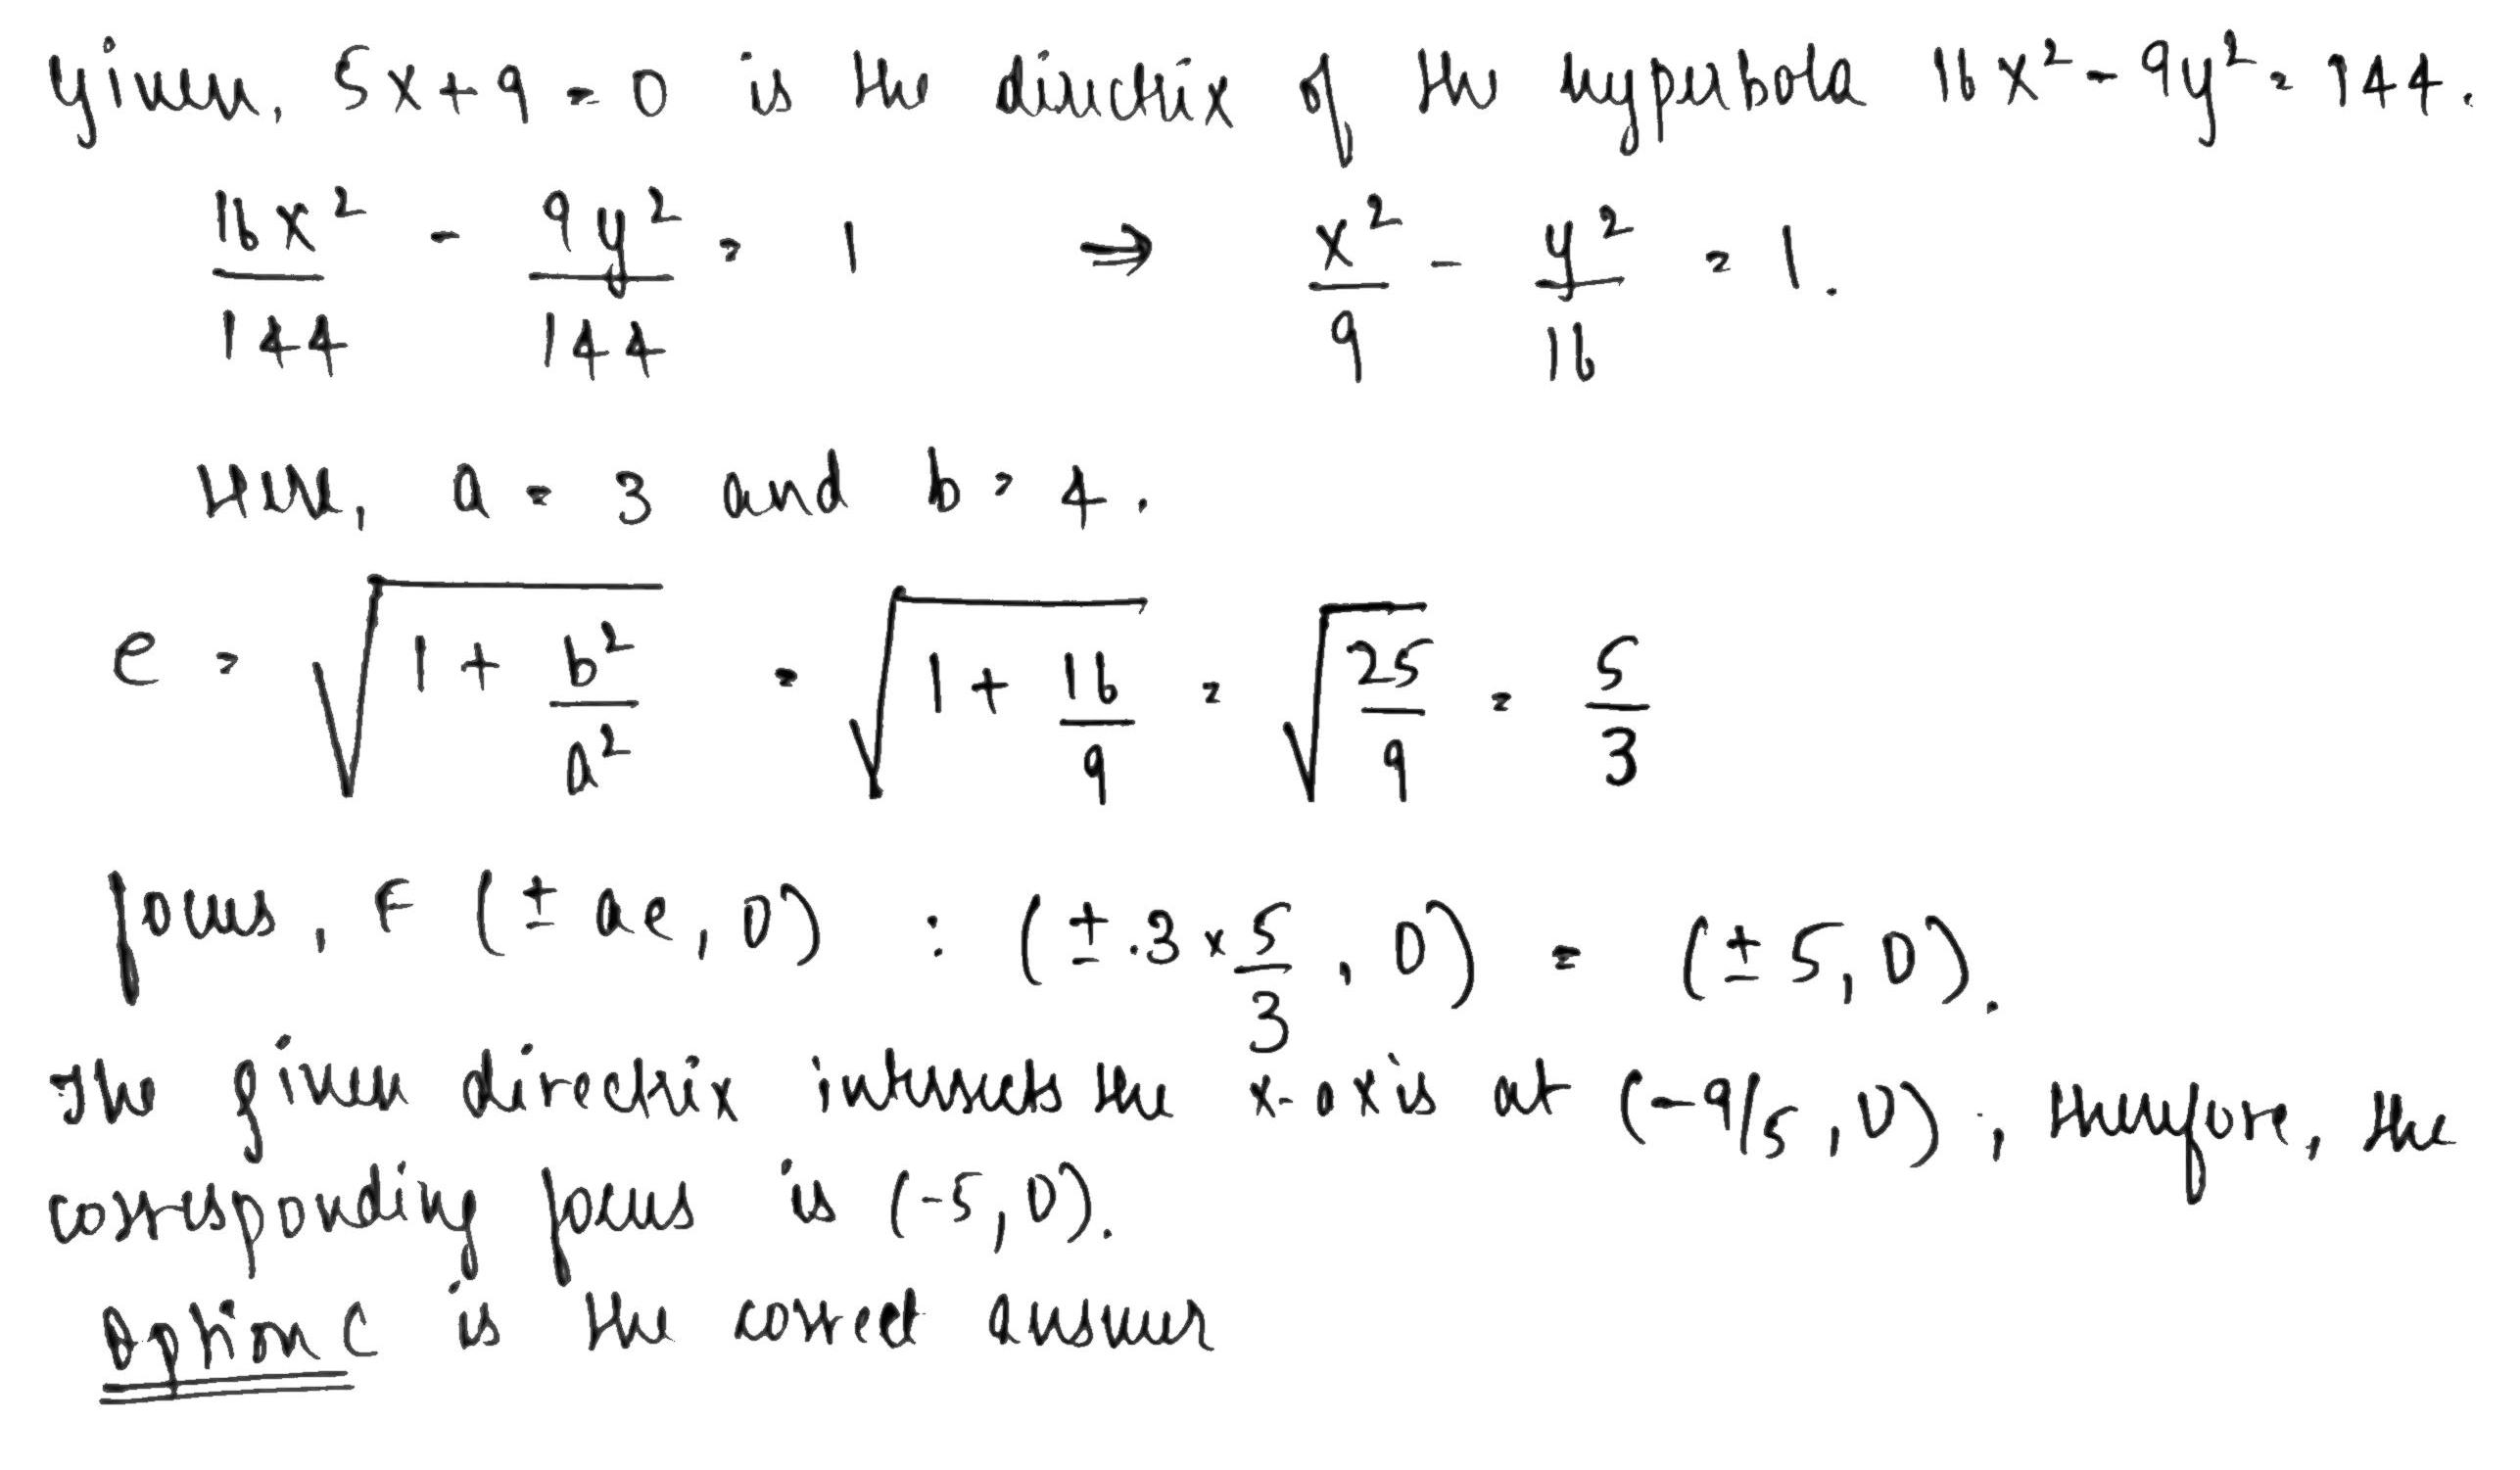 given, 5x+9=0 is the directrix of the hyperbola 16x² - 9y² = 144.
16x²/144 - 9y²/144 = 1 ⇒ x²/9 - y²/16 = 1.
Here, a = 3 and b = 4.
e = √(1 + b²/a²) = √(1 + 16/9) = √(25/9) = 5/3
focus, F (± ae, 0) : (± 3 × 5/3, 0) = (± 5, 0).
The given directrix intersects the x-axis at (-9/5, 0); therefore, the
corresponding focus is (-5, 0).
Option C is the correct answer